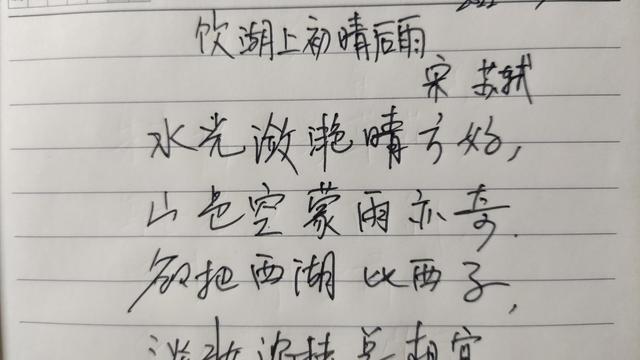 饮湖上初晴后雨
宋 苏轼
水光潋滟晴方好,
山色空蒙雨亦奇.
欲把西湖比西子,
淡妆浓抹总相宜